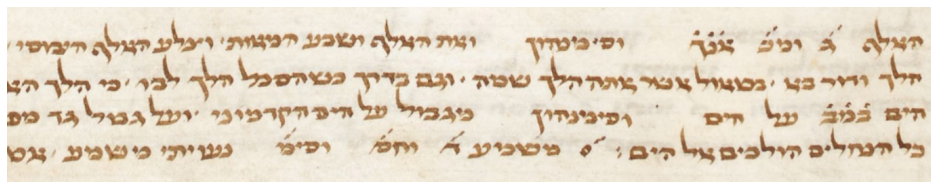 האלף ג̇ ומב̇ וסימנהון ואת האלף ושבע המאות · וצלע האלף היבוסי ·
הלך ודור בא · בשאול אשר אתה הלך שמה · וגם בדרך כשהסכל הלך לבו · כי הלך הא
הים ב̇מ̇ב̇ על הים וסימנהון מגבול על הים הקדמוני · ועל גבול גד מפ
כל הנחלים הולכים אל הים : משמע ד̇ וחס̇ וסימ̇ נעויתי משמע ·